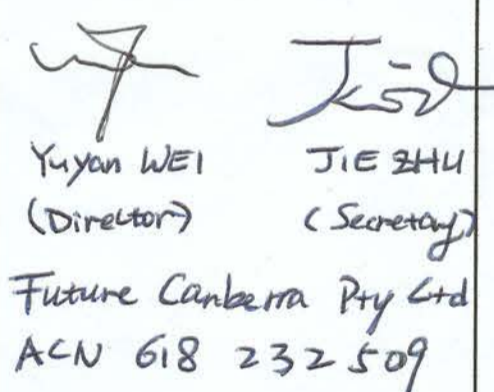 Yuyan WEI JIE ZHU
(Director) (Secretary)
Future Canberra Pty Ltd
ACN 618 232 509